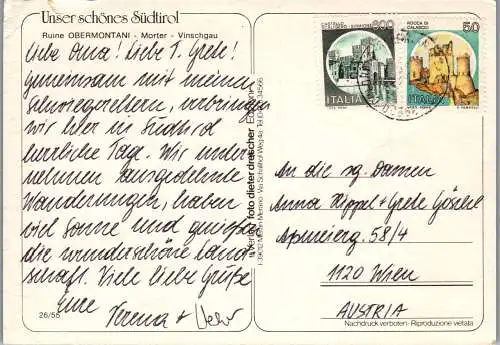 Unser schönes Südtirol
Ruine OBERMONTANI - Morter - Vinschgau
Liebe Oma! Liebe T. Grete!
Gemeinsam mit meinen
Schwiegereltern, verbringen
wir hier in Südtirol
herrliche Tage. Wir unter-
nehmen ausgedehnte
Wanderungen, haben
viel Sonne und genießen
die wunderschöne Land-
schaft. Viele liebe Grüße
Eure
Verena +
26/55
verlag foto dieter drescher
I-39012 Meran/Merano
CASTELLO SCALIGERO - SIRMIONE
600
ITALIA
ROCCA DI CALASCIO
50
ITALIA
An die sg. Damen
Anna + Grete
58/4
1120 Wien
AUSTRIA
Nachdruck verboten - Riproduzione vietata